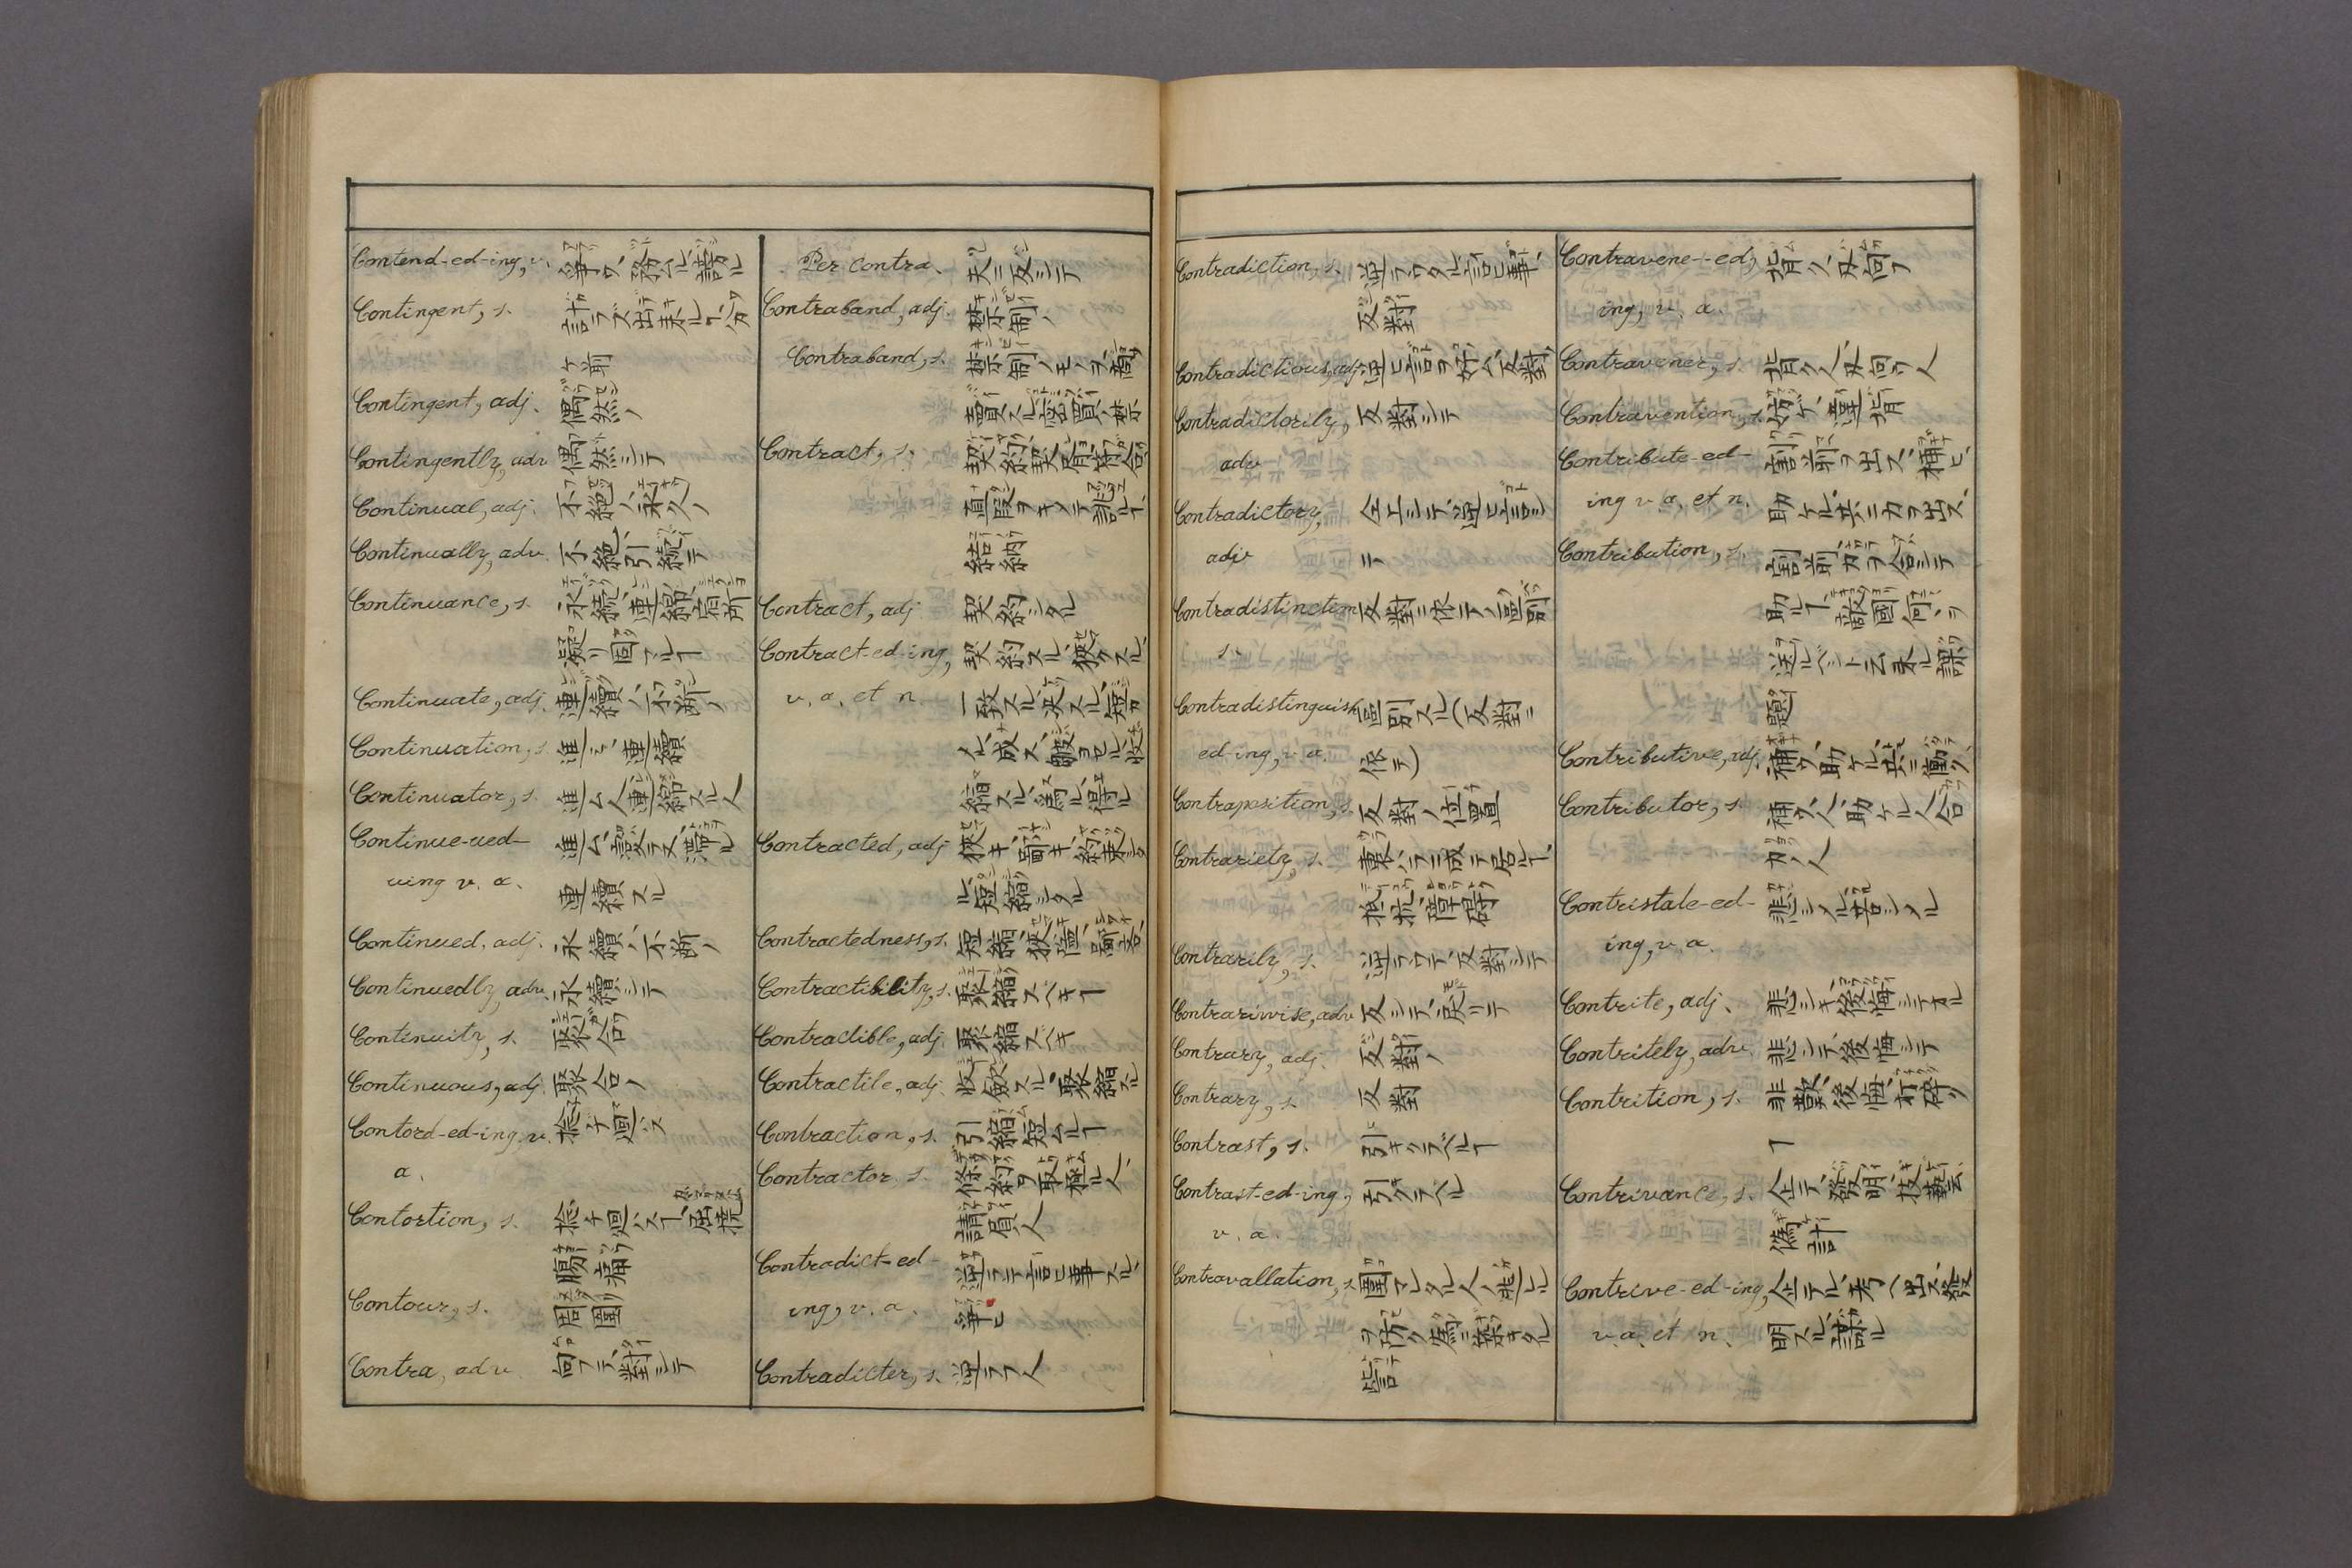 Contend-ed-ing, v. 爭フ、務ムル、誇ル
Contingent, s. 計ラズ出来ルヿ、分
ケ前
Contingent, adj. 偶然ノ
Contingently, adv 偶然シテ
Continual, adj. 不絶ノ、永久ノ
Continually, adv. 不絶、引續テ
Continuance, s. 永續、連綿、居所
凝リ固マルヿ
Continuate, adj. 連續ノ、不断ノ
Continuation, s. 進ミ、連續
Continuator, s. 進ム人、連綿スル人
Continue-ued- 進ム、
uing v. a. 連續スル
Continued, adj. 永續ノ、不断ノ
Continuedly, adv. 永續シテ
Continuity, s. 聚合
Continuous, adj. 聚合ノ
Contord-ed-ing, v. 捻ヂ廻ハス
a.
Contortion, s. 捻ヂ廻ハスヿ、
腸痛
Contour, s. 周圍
Contra, adv. 向フテ、對シテ
Per contra. 夫ニ反シテ
Contraband, adj. 禁制ノ
Contraband, s. 禁制ノモノヲ商
賣スル、密買ノ禁
Contract, s. 契約、契
直段ヲキメテ
結納
Contract, adj 契約シタル
Contract-ed-ing, 契約スル、狹クスル、
v. a. et n 一致スル、决スル、短カ
縮スル、爲ル、得ル
Contracted, adj 狹キ、鄙キ、約束シタ
ル、短縮シタル
Contractedness, s. 短縮、狹隘、鄙吝
Contractibility, s. 聚縮スベキヿ
Contractible, adj. 聚縮スベキ
Contractile, adj. 收斂スル、聚縮スル
Contraction, s. 引縮、短ムルヿ
Contractor, s. 條約ヲ取極ル人、
請負人
Contradict-ed- 逆ラテ言ヒ事スル、
ing, v. a. 爭ヒ
Contradicter, s. 逆ラフ人
Contradiction, s. 逆ラウタル言ヒ事、
反對
Contradictious, adj. 逆ヒ言ヲ好ム、反對ノ
Contradictorily, 反對シテ
adv
Contradictory, 仝上シテ、逆ヒ言シ
adj テ
Contradistinction 反對ニ依テノ區別
s.
Contradistinguish 區別スル(反對ニ
ed-ing, v. a. 依テ)
Contraposition, s. 反對ノ位置
Contrariety, s. 裏ハラニ成テ居ルヿ、
抵抗、障碍
Contrarily, s. 逆ラウテ、反對シテ
Contrariwise, adv 反シテ、戻リテ
Contrary, adj. 反對ノ
Contrary, s. 反對
Contrast, s. 引キクラベルヿ
Contrast-ed-ing, 引クラベル
v. a.
Contravallation, s. 圍マレタル人ノ進ミ
ヲ防ク爲ニ築キタル
砦
Contravene--ed, 背ク、不向フ
ing, v. a.
Contravener, s. 背ク人、不向ウ人
Contravention, s. 妨ゲ、違背
Contribute-ed- 割前ヲ出ス、補ヒ、
ing v. a. et n. 助ケル、共ニ力ヲ出ス、
Contribution, s. 割前、力ヲ合シテ
助ルヿ、敵國何ヽヲ
送ルベシト云来ル課
題
Contributive, adj. 補フ、助ケル、共ニ働ク、
Contributor, s. 補フ人、助ケル人、合
力ノ人
Contristate-ed- 悲シメル、苦シメル
ing, v. a.
Contrite, adj. 悲シキ、後悔シテオル
Contritely, adv. 悲シテ、後悔シテ
Contrition, s. 悲歎、後悔、打碎ク
ヿ
Contrivance, s. 企テ、發明、技藝、
僞計
Contrive-ed-ing, 企テル、考ヘ出ス、發
v. a. et n. 明スル、謀ル